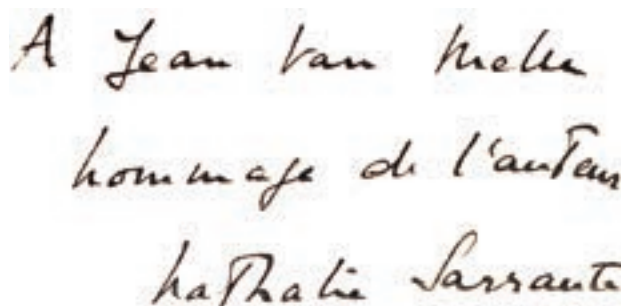 A Jean Van Melle
hommage de l'auteur
Nathalie Sarraute